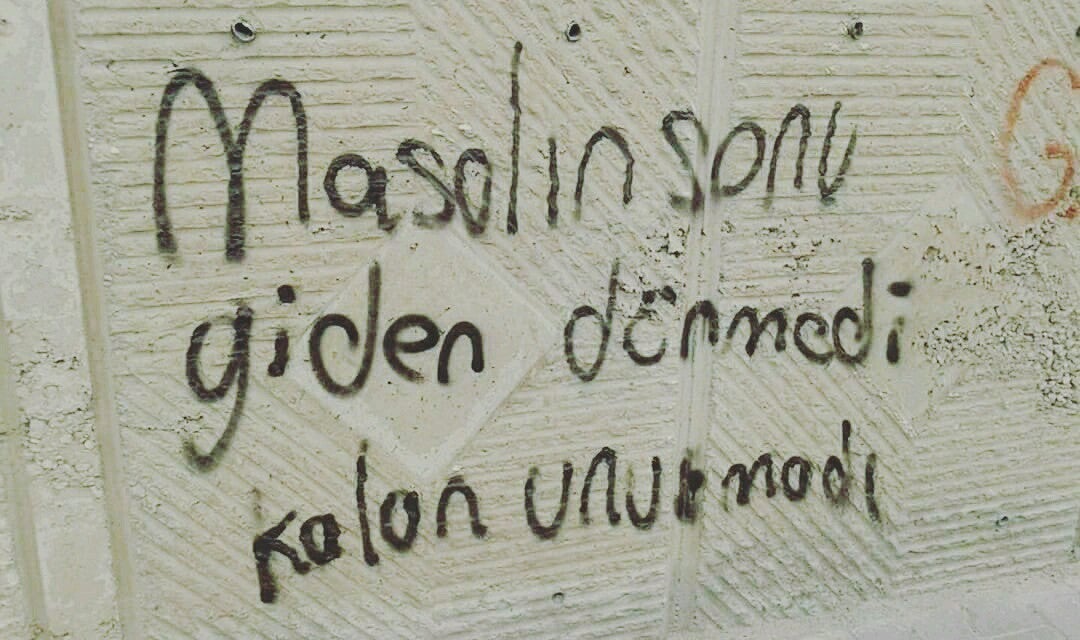 Masalın sonu
giden dönmedi
kalan unutmadı
G